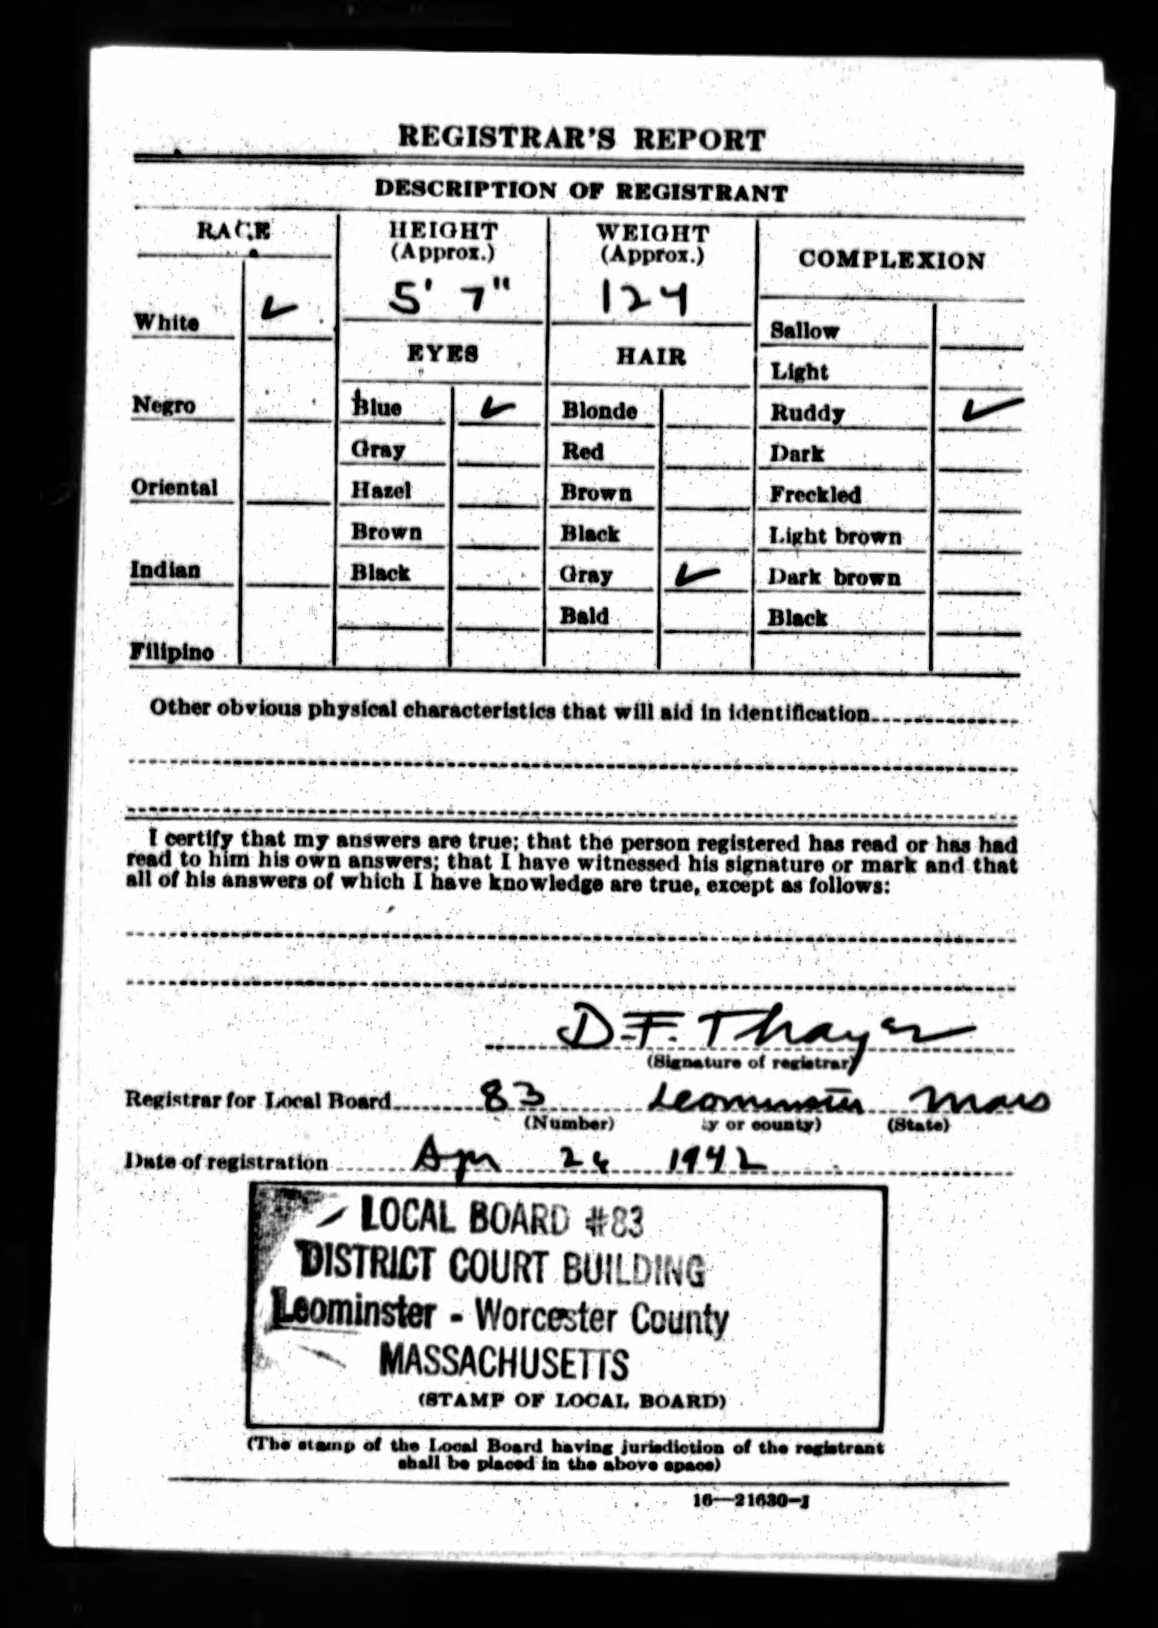 REGISTRAR'S REPORT
DESCRIPTION OF REGISTRANT
RACE
HEIGHT
(Approx.)
5' 7"
WEIGHT
(Approx.)
124
COMPLEXION
White ✓
Negro
Oriental
Indian
Filipino
EYES
Blue ✓
Gray
Hazel
Brown
Black
HAIR
Blonde
Red
Brown
Black
Gray ✓
Bald
Sallow
Light
Ruddy ✓
Dark
Freckled
Light brown
Dark brown
Black
Other obvious physical characteristics that will aid in identification
I certify that my answers are true; that the person registered has read or has had
read to him his own answers; that I have witnessed his signature or mark and that
all of his answers of which I have knowledge are true, except as follows:
D.F. Thayer
(Signature of registrar)
Registrar for Local Board 83 Leominster Mass
(Number) y or county) (State)
Date of registration Apr 26 1942
LOCAL BOARD #83
DISTRICT COURT BUILDING
Leominster - Worcester County
MASSACHUSETTS
(STAMP OF LOCAL BOARD)
(The stamp of the Local Board having jurisdiction of the registrant
shall be placed in the above space)
16—21630-1